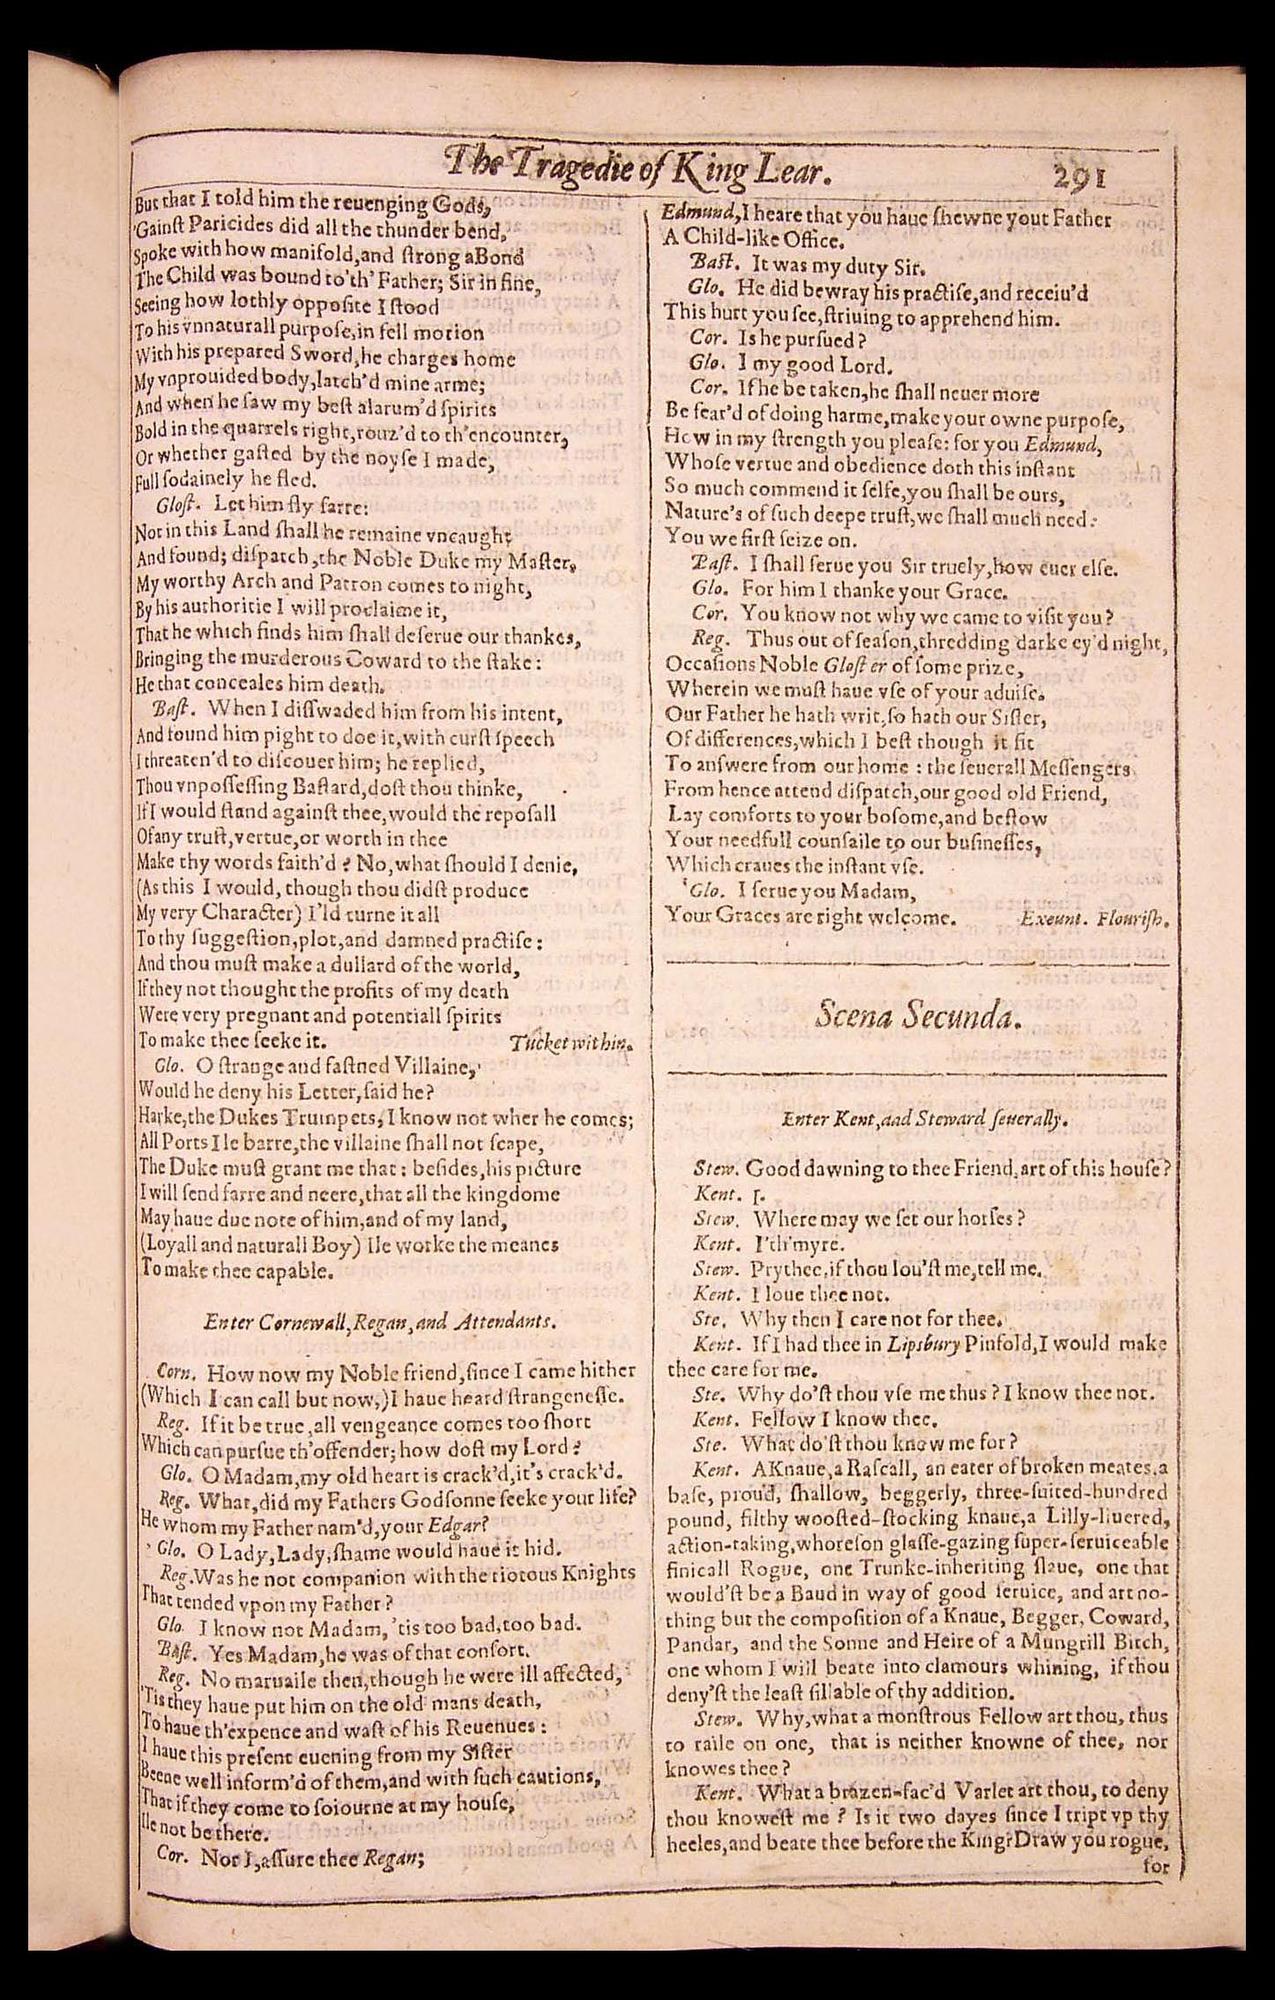 The Tragedie of King Lear.
291
But that I told him the reuenging Gods,
'Gainſt Paricides did all the thunder bend,
Spoke with how manifold, and ſtrong a Bond
The Child was bound to'th' Father; Sir in fine,
Seeing how lothly oppoſite I ſtood
To his vnnaturall purpoſe, in fell motion
With his prepared Sword, he charges home
My vnprouided body, latch'd mine arme;
And when he ſaw my beſt alarum'd ſpirits
Bold in the quarrels right, rouz'd to th'encounter,
Or whether gaſted by the noyſe I made,
Full ſodainely he fled.
Gloſt. Let him fly farre:
Not in this Land ſhall he remaine vncaught
And found; diſpatch, the Noble Duke my Maſter,
My worthy Arch and Patron comes to night,
By his authoritie I will proclaime it,
That he which finds him ſhall deſerue our thankes,
Bringing the murderous Coward to the ſtake:
He that conceales him death.
Baſt. When I diſſwaded him from his intent,
And found him pight to doe it, with curſt ſpeech
I threaten'd to diſcouer him; he replied,
Thou vnpoſſeſſing Baſtard, doſt thou thinke,
If I would ſtand againſt thee, would the repoſall
Of any truſt, vertue, or worth in thee
Make thy words faith'd? No, what ſhould I denie,
(As this I would, though thou didſt produce
My very Character) I'ld turne it all
To thy ſuggeſtion, plot, and damned practiſe:
And thou muſt make a dullard of the world,
If they not thought the profits of my death
Were very pregnant and potentiall ſpirits
To make thee ſeeke it. Tucket within.
Glo. O ſtrange and faſtned Villaine,
Would he deny his Letter, ſaid he?
Harke, the Dukes Trumpets, I know not wher he comes;
All Ports Ile barre, the villaine ſhall not ſcape,
The Duke muſt grant me that: beſides, his picture
I will ſend farre and neere, that all the kingdome
May haue due note of him, and of my land,
(Loyall and naturall Boy) Ile worke the meanes
To make thee capable.
Enter Cornewall, Regan, and Attendants.
Corn. How now my Noble friend, ſince I came hither
(Which I can call but now,) I haue heard ſtrangeneſſe.
Reg. If it be true, all vengeance comes too ſhort
Which can purſue th'offender; how doſt my Lord?
Glo. O Madam, my old heart is crack'd, it's crack'd.
Reg. What, did my Fathers Godſonne ſeeke your life?
He whom my Father nam'd, your Edgar?
Glo. O Lady, Lady, ſhame would haue it hid.
Reg. Was he not companion with the riotous Knights
That tended vpon my Father?
Glo. I know not Madam, 'tis too bad, too bad.
Baſt. Yes Madam, he was of that conſort.
Reg. No maruaile then, though he were ill affected,
'Tis they haue put him on the old mans death,
To haue th'expence and waſt of his Reuenues:
I haue this preſent euening from my Siſter
Beene well inform'd of them, and with ſuch cautions,
That if they come to ſoiourne at my houſe,
Ile not be there.
Cor. Nor I, aſſure thee Regan;
Edmund, I heare that you haue ſhewne yout Father
A Child-like Office.
Baſt. It was my duty Sir.
Glo. He did bewray his practiſe, and receiu'd
This hurt you ſee, ſtriuing to apprehend him.
Cor. Is he purſued?
Glo. I my good Lord.
Cor. If he be taken, he ſhall neuer more
Be fear'd of doing harme, make your owne purpoſe,
How in my ſtrength you pleaſe: for you Edmund,
Whoſe vertue and obedience doth this inſtant
So much commend it ſelfe, you ſhall be ours,
Nature's of ſuch deepe truſt, we ſhall much need:
You we firſt ſeize on.
Baſt. I ſhall ſerue you Sir truely, how euer elſe.
Glo. For him I thanke your Grace.
Cor. You know not why we came to viſit you?
Reg. Thus out of ſeaſon, thredding darke ey'd night,
Occaſions Noble Gloſter of ſome prize,
Wherein we muſt haue vſe of your aduiſe.
Our Father he hath writ, ſo hath our Siſter,
Of differences, which I beſt though it fit
To anſwere from our home: the ſeuerall Meſſengers
From hence attend diſpatch, our good old Friend,
Lay comforts to your boſome, and beſtow
Your needfull counſaile to our buſineſſes,
Which craues the inſtant vſe.
Glo. I ſerue you Madam,
Your Graces are right welcome. Exeunt. Flouriſh.
Scena Secunda.
Enter Kent, aad Steward ſeuerally.
Stew. Good dawning to thee Friend, art of this houſe?
Kent. I.
Stew. Where may we ſet our horſes?
Kent. I'th'myre.
Stew. Prythee, if thou lou'ſt me, tell me.
Kent. I loue thee not.
Ste. Why then I care not for thee.
Kent. If I had thee in Lipsbury Pinfold, I would make
thee care for me.
Ste. Why do'ſt thou vſe me thus? I know thee not.
Kent. Fellow I know thee.
Ste. What do'ſt thou know me for?
Kent. A Knaue, a Raſcall, an eater of broken meates, a
baſe, proud, ſhallow, beggerly, three-ſuited-hundred
pound, filthy wooſted-ſtocking knaue, a Lilly-liuered,
action-taking, whoreſon glaſſe-gazing ſuper-ſeruiceable
finicall Rogue, one Trunke-inheriting ſlaue, one that
would'ſt be a Baud in way of good ſeruice, and art no-
thing but the compoſition of a Knaue, Begger, Coward,
Pandar, and the Sonne and Heire of a Mungrill Bitch,
one whom I will beate into clamours whining, if thou
deny'ſt the leaſt ſillable of thy addition.
Stew. Why, what a monſtrous Fellow art thou, thus
to raile on one, that is neither knowne of thee, nor
knowes thee?
Kent. What a brazen-fac'd Varlet art thou, to deny
thou knoweſt me? Is it two dayes ſince I tript vp thy
heeles, and beate thee before the King? Draw you rogue,
for